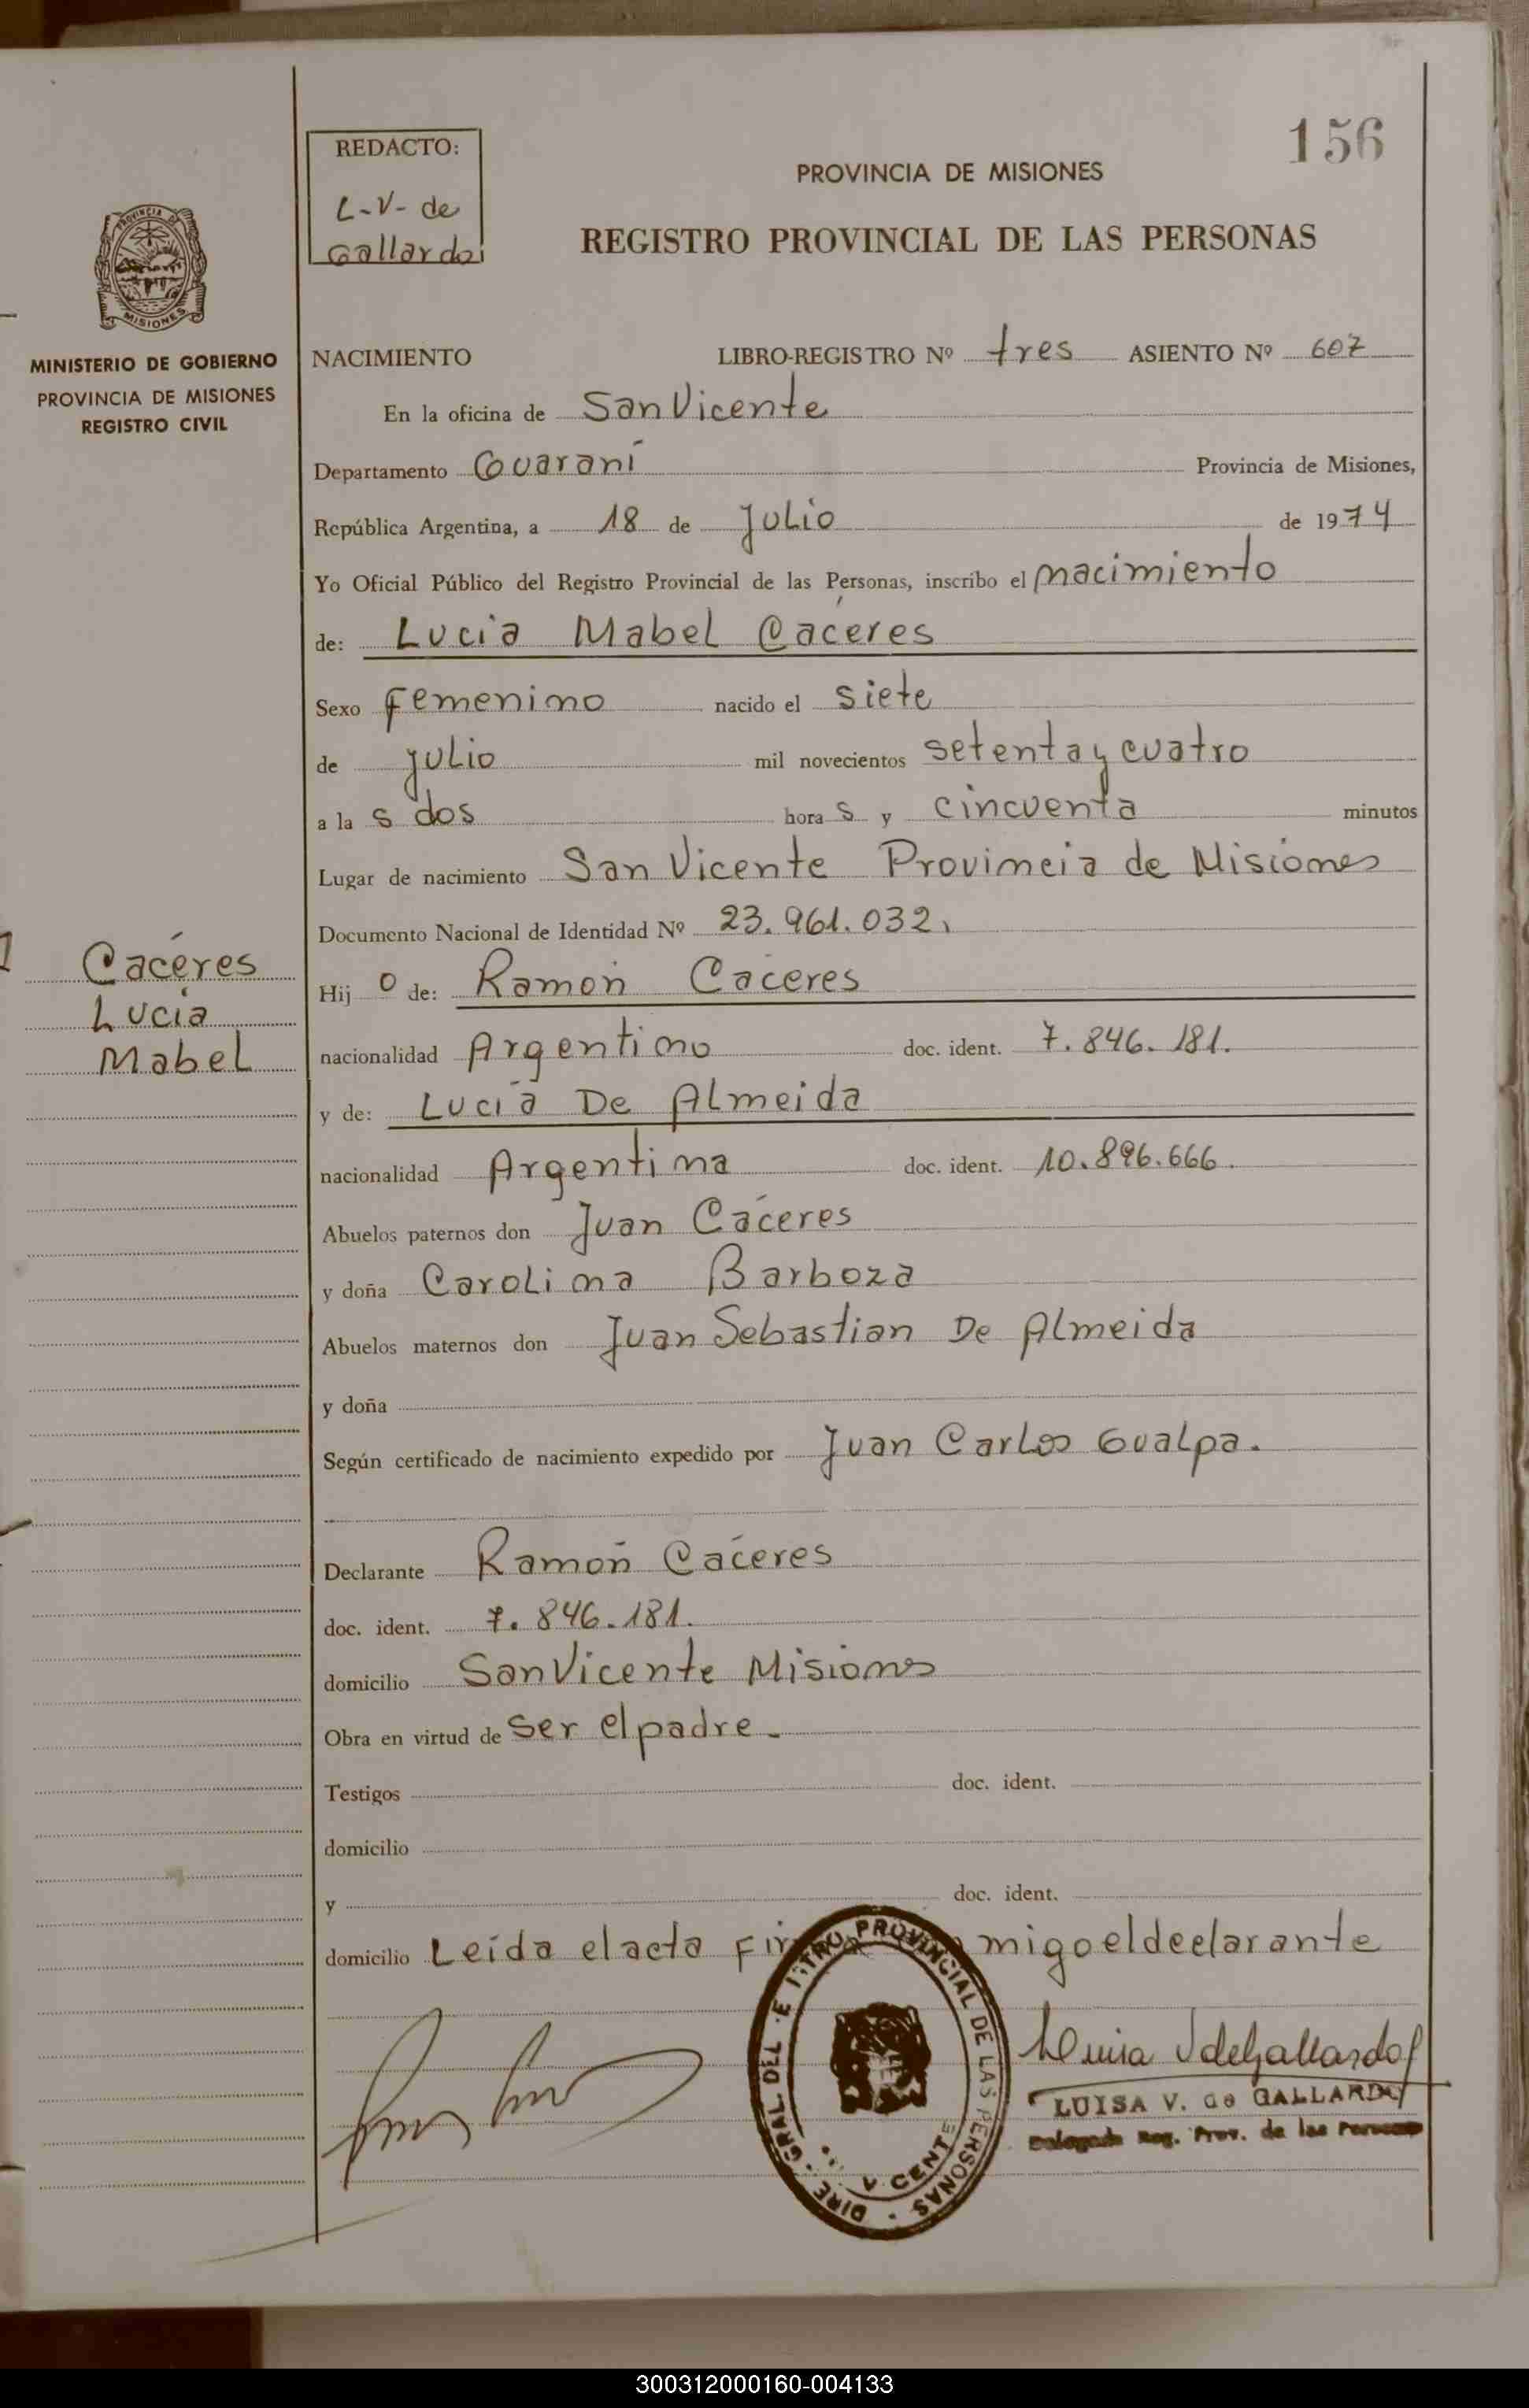 156
REDACTO:
L-V- de
Gallardo
PROVINCIA DE MISIONES
REGISTRO PROVINCIAL DE LAS PERSONAS
PROVINCIA DE
MISIONES
MINISTERIO DE GOBIERNO
PROVINCIA DE MISIONES
REGISTRO CIVIL
NACIMIENTO LIBRO-REGISTRO Nº tres ASIENTO Nº 607
En la oficina de San Vicente
Departamento Guaraní Provincia de Misiones,
República Argentina, a 18 de Julio de 1974
Yo Oficial Público del Registro Provincial de las Personas, inscribo el nacimiento
de: Lucia Mabel Cáceres
Sexo Femenino nacido el siete
de julio mil novecientos setenta y cuatro
a la s dos hora s y cincuenta minutos
Lugar de nacimiento San Vicente Provincia de Misiones
Documento Nacional de Identidad Nº 23.961.032.
Cáceres
Lucia
Mabel
Hij o de: Ramón Caceres
nacionalidad Argentino doc. ident. 7.846.181.
y de: Lucía De Almeida
nacionalidad Argentina doc. ident. 10.896.666.
Abuelos paternos don Juan Cáceres
y doña Carolina Barboza
Abuelos maternos don Juan Sebastian De Almeida
y doña
Según certificado de nacimiento expedido por Juan Carlos Gualpa.
Declarante Ramón Cáceres
doc. ident. 7.846.181.
domicilio San Vicente Misiones
Obra en virtud de ser el padre-
Testigos doc. ident.
domicilio
y doc. ident.
domicilio Leída el acta migo el declarante
PROVINCIAL DE LAS PERSONAS
GRAL DEL
Luisa V de Gallardo
LUISA V. de GALLARDO
Delegada Reg. Prov. de las Personas
300312000160-004133